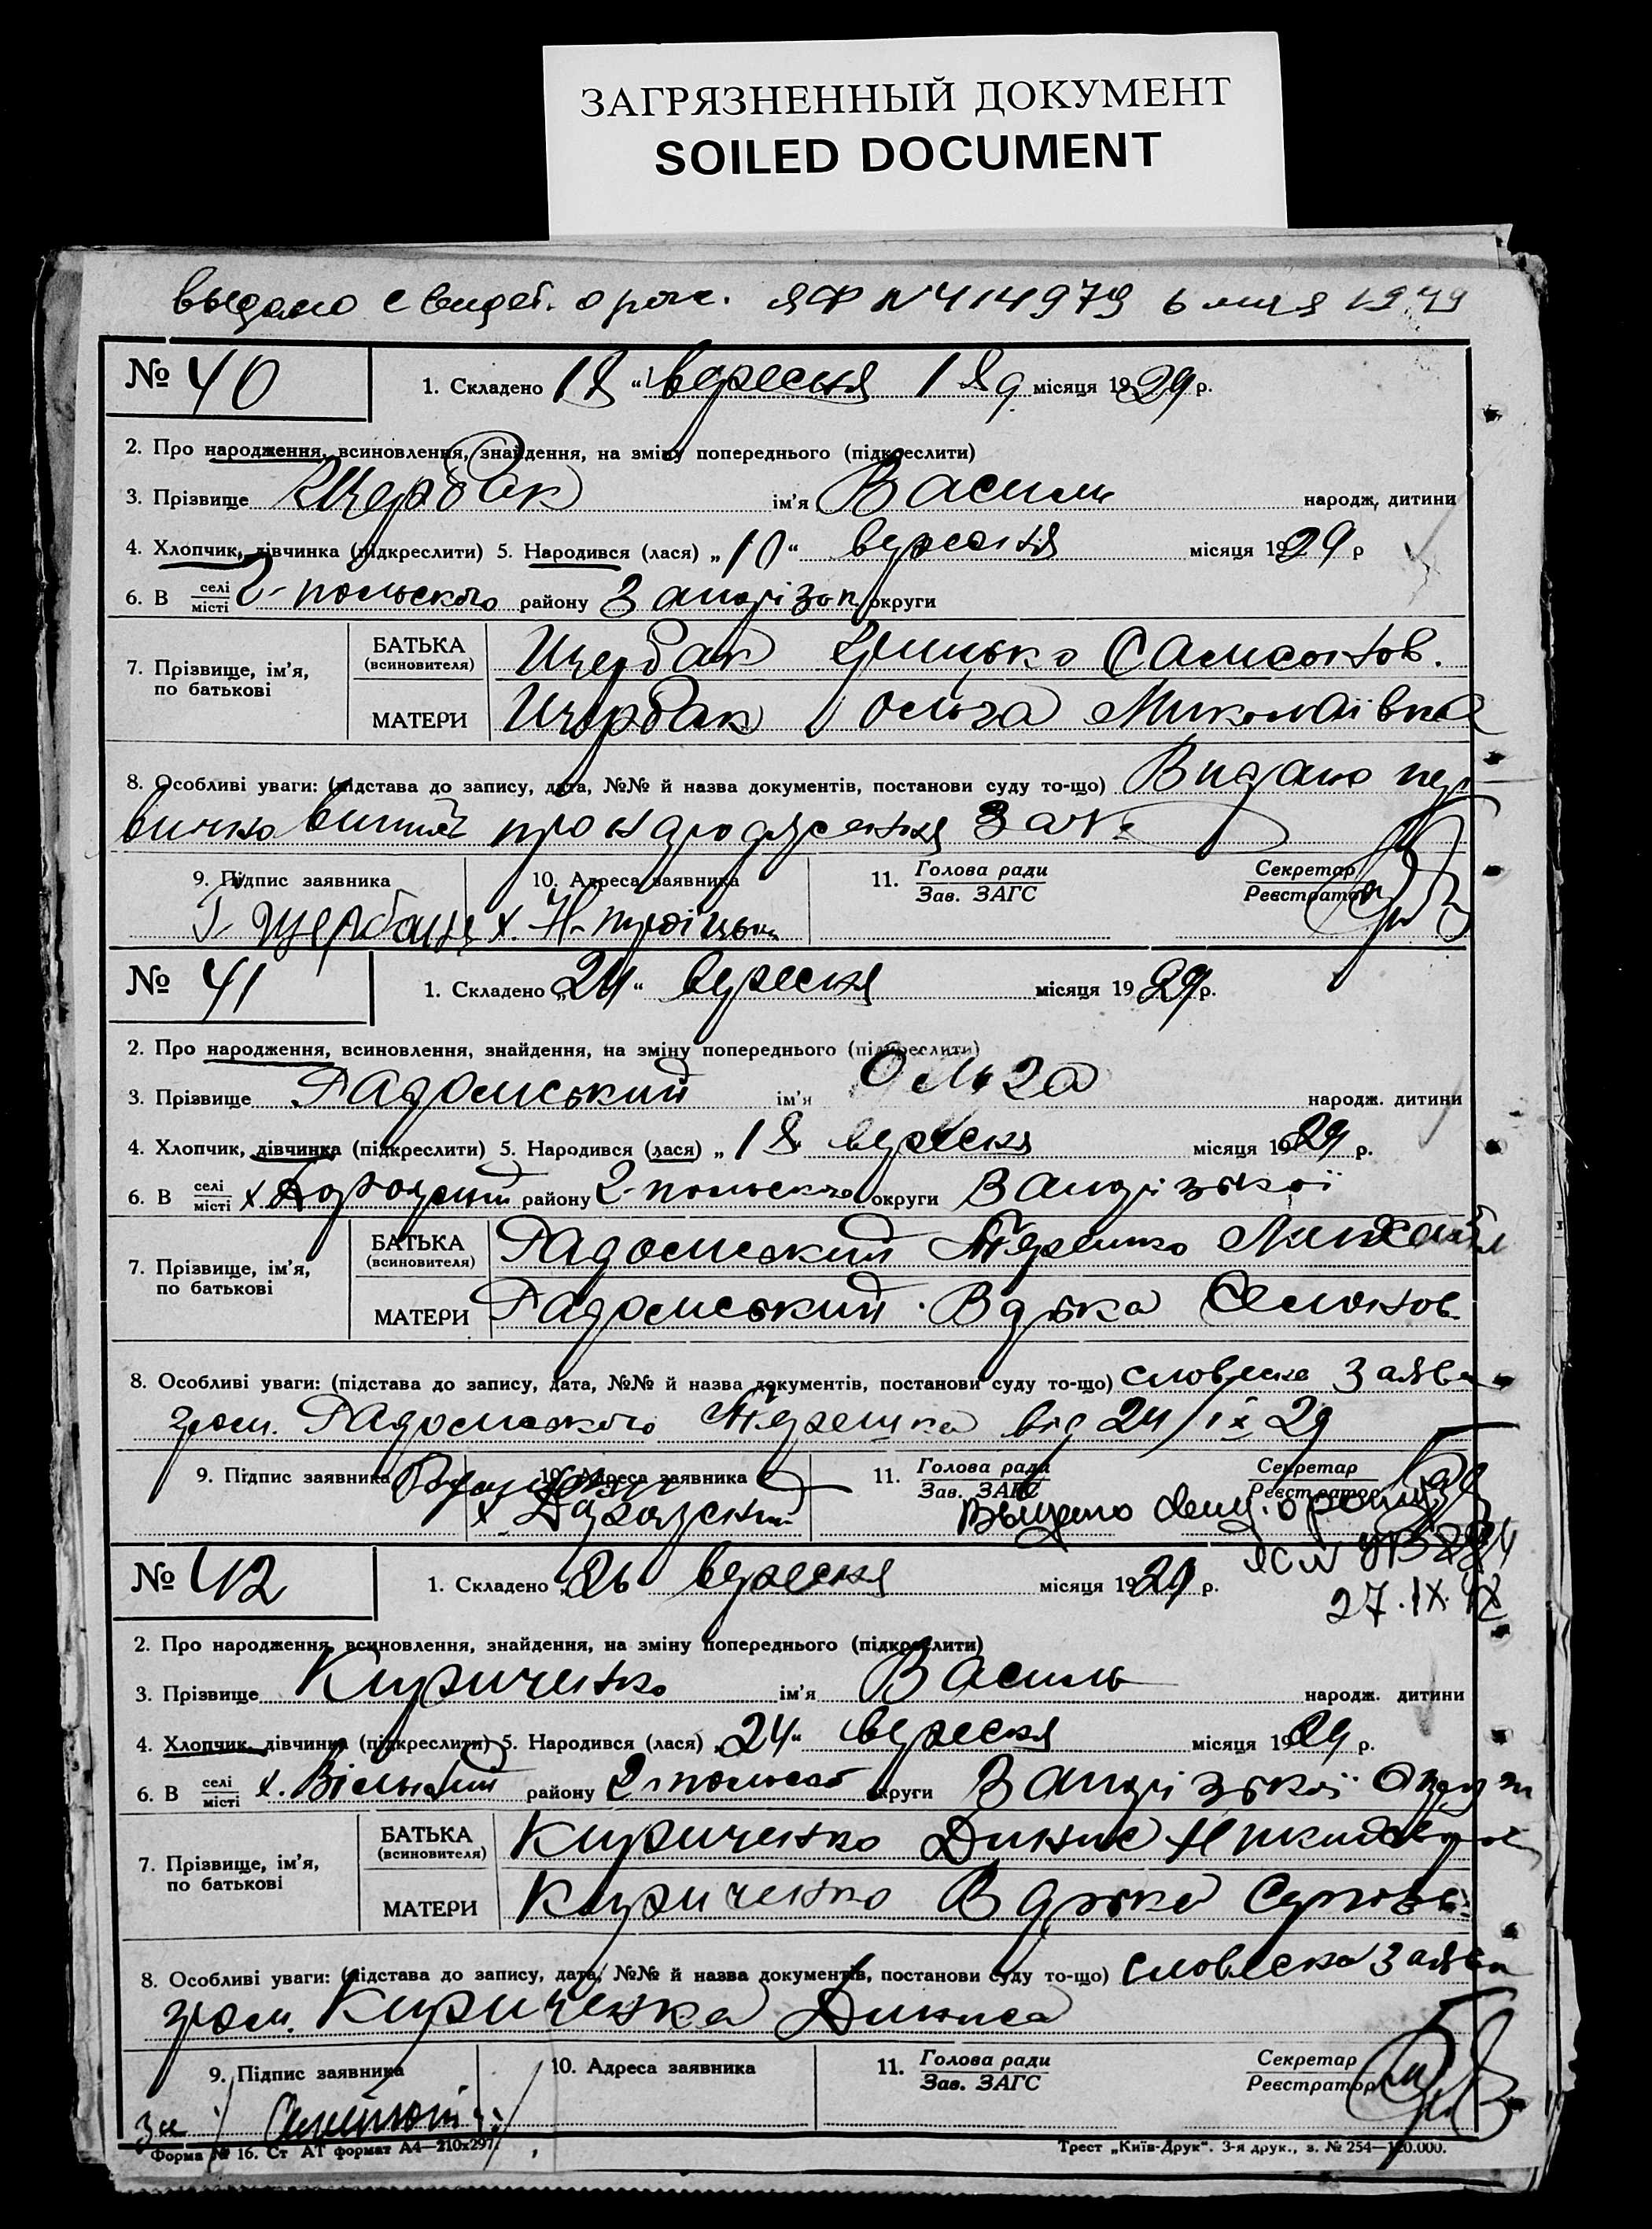 ЗАГРЯЗНЕННЫЙ ДОКУМЕНТ
SOILED DOCUMENT
выдано свидет. о рож. ЯФ N 414979 6 мая 1949
№ 40
1. Складено 18 „ вересня 18 9 місяця 1929 р.
2. Про народження, всиновлення, знайдення, на зміну попереднього (підкреслити)
3. Прізвище Щербак ім'я Василь народж. дитини
4. Хлопчик, дівчинка (підкреслити) 5. Народився (лася) „10“ вересня місяця 1929 р
6. В селі місті 2-польского району Запорізок округи
7. Прізвище, ім'я, по батькові
БАТЬКА (всиновителя) Щербак Грицько Самсонов.
МАТЕРИ Щербак Ольга Миколаівна
8. Особливі уваги: (підстава до запису, дата, №№ й назва документів, постанови суду то-що) Видано пер
вично витяг про народження
9. Підпис заявника 10. Адреса заявника 11. Голова ради Зав. ЗАГС Секретар Реєстратор
Г. Щербак х. Н-
№ 41
1. Складено „24“ вересня місяця 1929 р.
2. Про народження, всиновлення, знайдення, на зміну попереднього (підкреслити)
3. Прізвище Радомський ім'я Ольга народж. дитини
4. Хлопчик, дівчинка (підкреслити) 5. Народився (лася) „18 вересня місяця 1929 р.
6. В селі місті х району 2-польского округи Запорізької
7. Прізвище, ім'я, по батькові
БАТЬКА (всиновителя) Радомский Михайл
МАТЕРИ Радомський Вдька Семонов
8. Особливі уваги: (підстава до запису, дата, №№ й назва документів, постанови суду то-що) словесна заява
гром. Радомського від 24/ІХ 29
9. Підпис заявника 10. Адреса заявника 11. Голова ради Зав. ЗАГС Секретар Реєстратор
Выдано свид. о рожд.
27.IX.
№ 42
1. Складено „26 вересня місяця 1929 р.
2. Про народження, всиновлення, знайдення, на зміну попереднього (підкреслити)
3. Прізвище Кириченко ім'я Василь народж. дитини
4. Хлопчик, дівчинка (підкреслити) 5. Народився (лася) „24“ вересня місяця 1929 р.
6. В селі місті х. Вільний району 2-польсьо округи Запорізької
7. Прізвище, ім'я, по батькові
БАТЬКА (всиновителя) Кириченко Динис
МАТЕРИ Кириченко
8. Особливі уваги: (підстава до запису, дата, №№ й назва документів, постанови суду то-що) словесна заява
гром. Кириченка Диниса
9. Підпис заявника 10. Адреса заявника 11. Голова ради Зав. ЗАГС Секретар Реєстратор
за
Форма № 16. Ст АТ формат А4—210х297.
Трест „Київ-Друк“. 3-я друк., з. № 254—120.000.